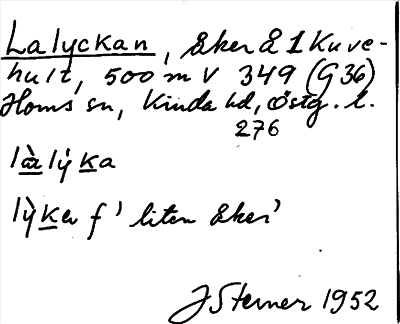 Lalyckan, åker å 1 Kuve-
hult, 500 m V 349 (G36)
Horns sn, Kinda hd, Östg. l.
276
làlýka
lỳka f ' liten åker'
J Sterner 1952